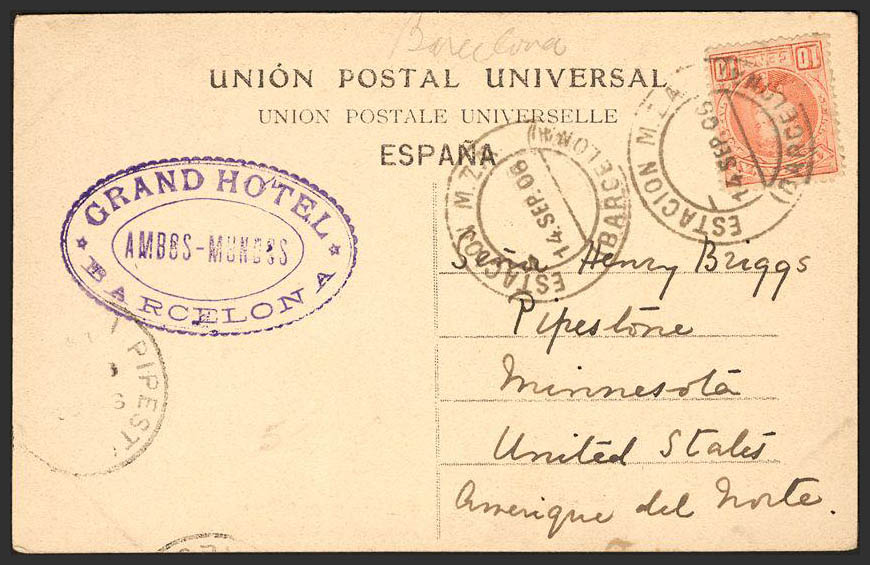 Barcelona
UNIÓN POSTAL UNIVERSAL
UNION POSTALE UNIVERSELLE
ESPAÑA
10 10
ESTACION M.Z.A. (BARCELONA)
14 SEP. 06
ESTACION M.Z.A. (BARCELONA)
14 SEP. 06
GRAND HOTEL
AMBOS-MUNDOS
BARCELONA
Henry Briggs
Pipestone
Minnesota
United States
Amerique del Norte.
PIPEST